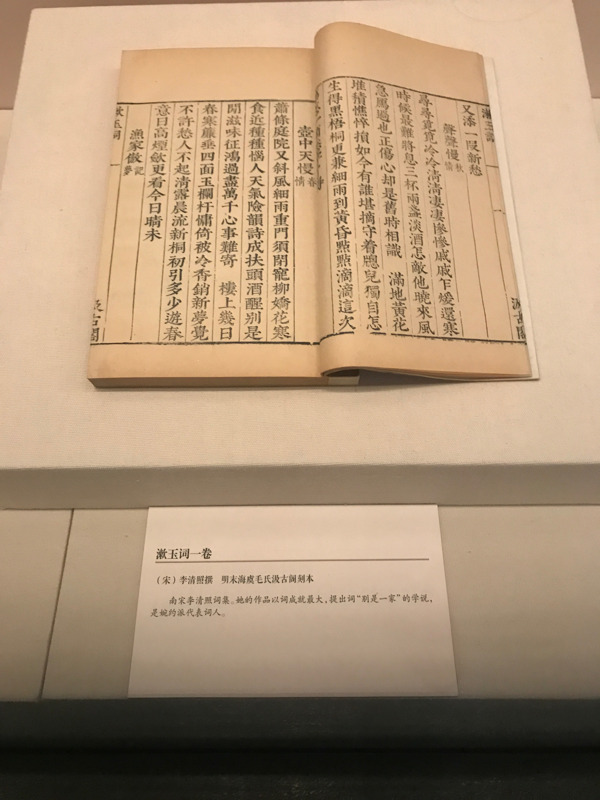 漱玉詞 一
又添一段新愁
聲聲慢 秋情
尋尋覓覓冷冷清清凄凄慘慘戚戚乍煖還寒
時候最難將息三杯兩盞淡酒怎敵他曉來風
急鴈過也正傷心却是舊時相識 滿地黃花
堆積憔悴損如今有誰堪摘守着牕兒獨自怎
生得黑梧桐更兼細雨到黃昏點點滴滴這次
壺中天慢 春情
蕭條庭院又斜風細雨重門須閉寵柳嬌花寒
食近種種惱人天氣險韻詩成扶頭酒醒別是
閒滋味征鴻過盡萬千心事難寄 樓上幾日
春寒簾垂四面玉欄杆慵倚被冷香銷新夢覺
不許愁人不起清露晨流新桐初引多少遊春
意日高煙斂更看今日晴未
漁家傲 記夢
漱玉詞 一 汲古閣
漱玉词一卷
（宋）李清照撰 明末海虞毛氏汲古阁刻本
南宋李清照词集。她的作品以词成就最大，提出词“别是一家”的学说，
是婉约派代表词人。